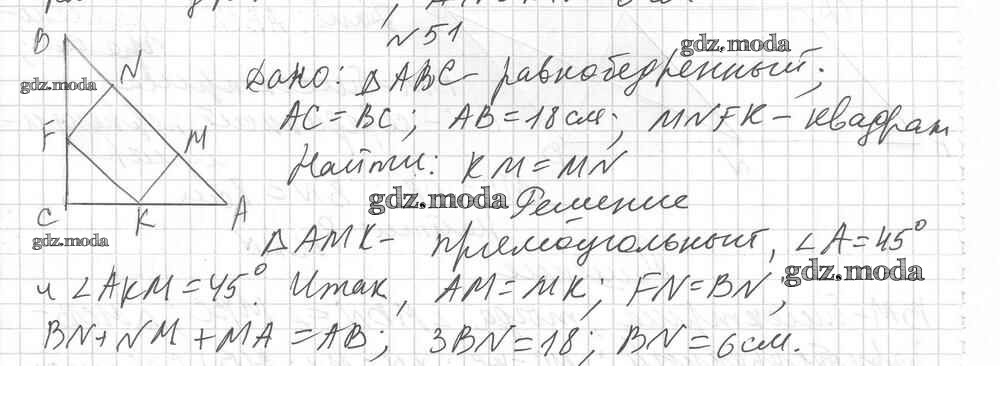 №51
B
N
F
M
C
K
A
gdz.moda
gdz.moda
Дано: △ABC - равнобедренный;
AC = BC; AB = 18 см; MNFK - квадрат
Найти: KM = MN
gdz.moda
Решение
gdz.moda
△AMK - прямоугольный, ∠A = 45°
gdz.moda
и ∠AKM = 45°. Итак, AM = MK; FN = BN;
BN + NM + MA = AB; 3BN = 18; BN = 6 см.